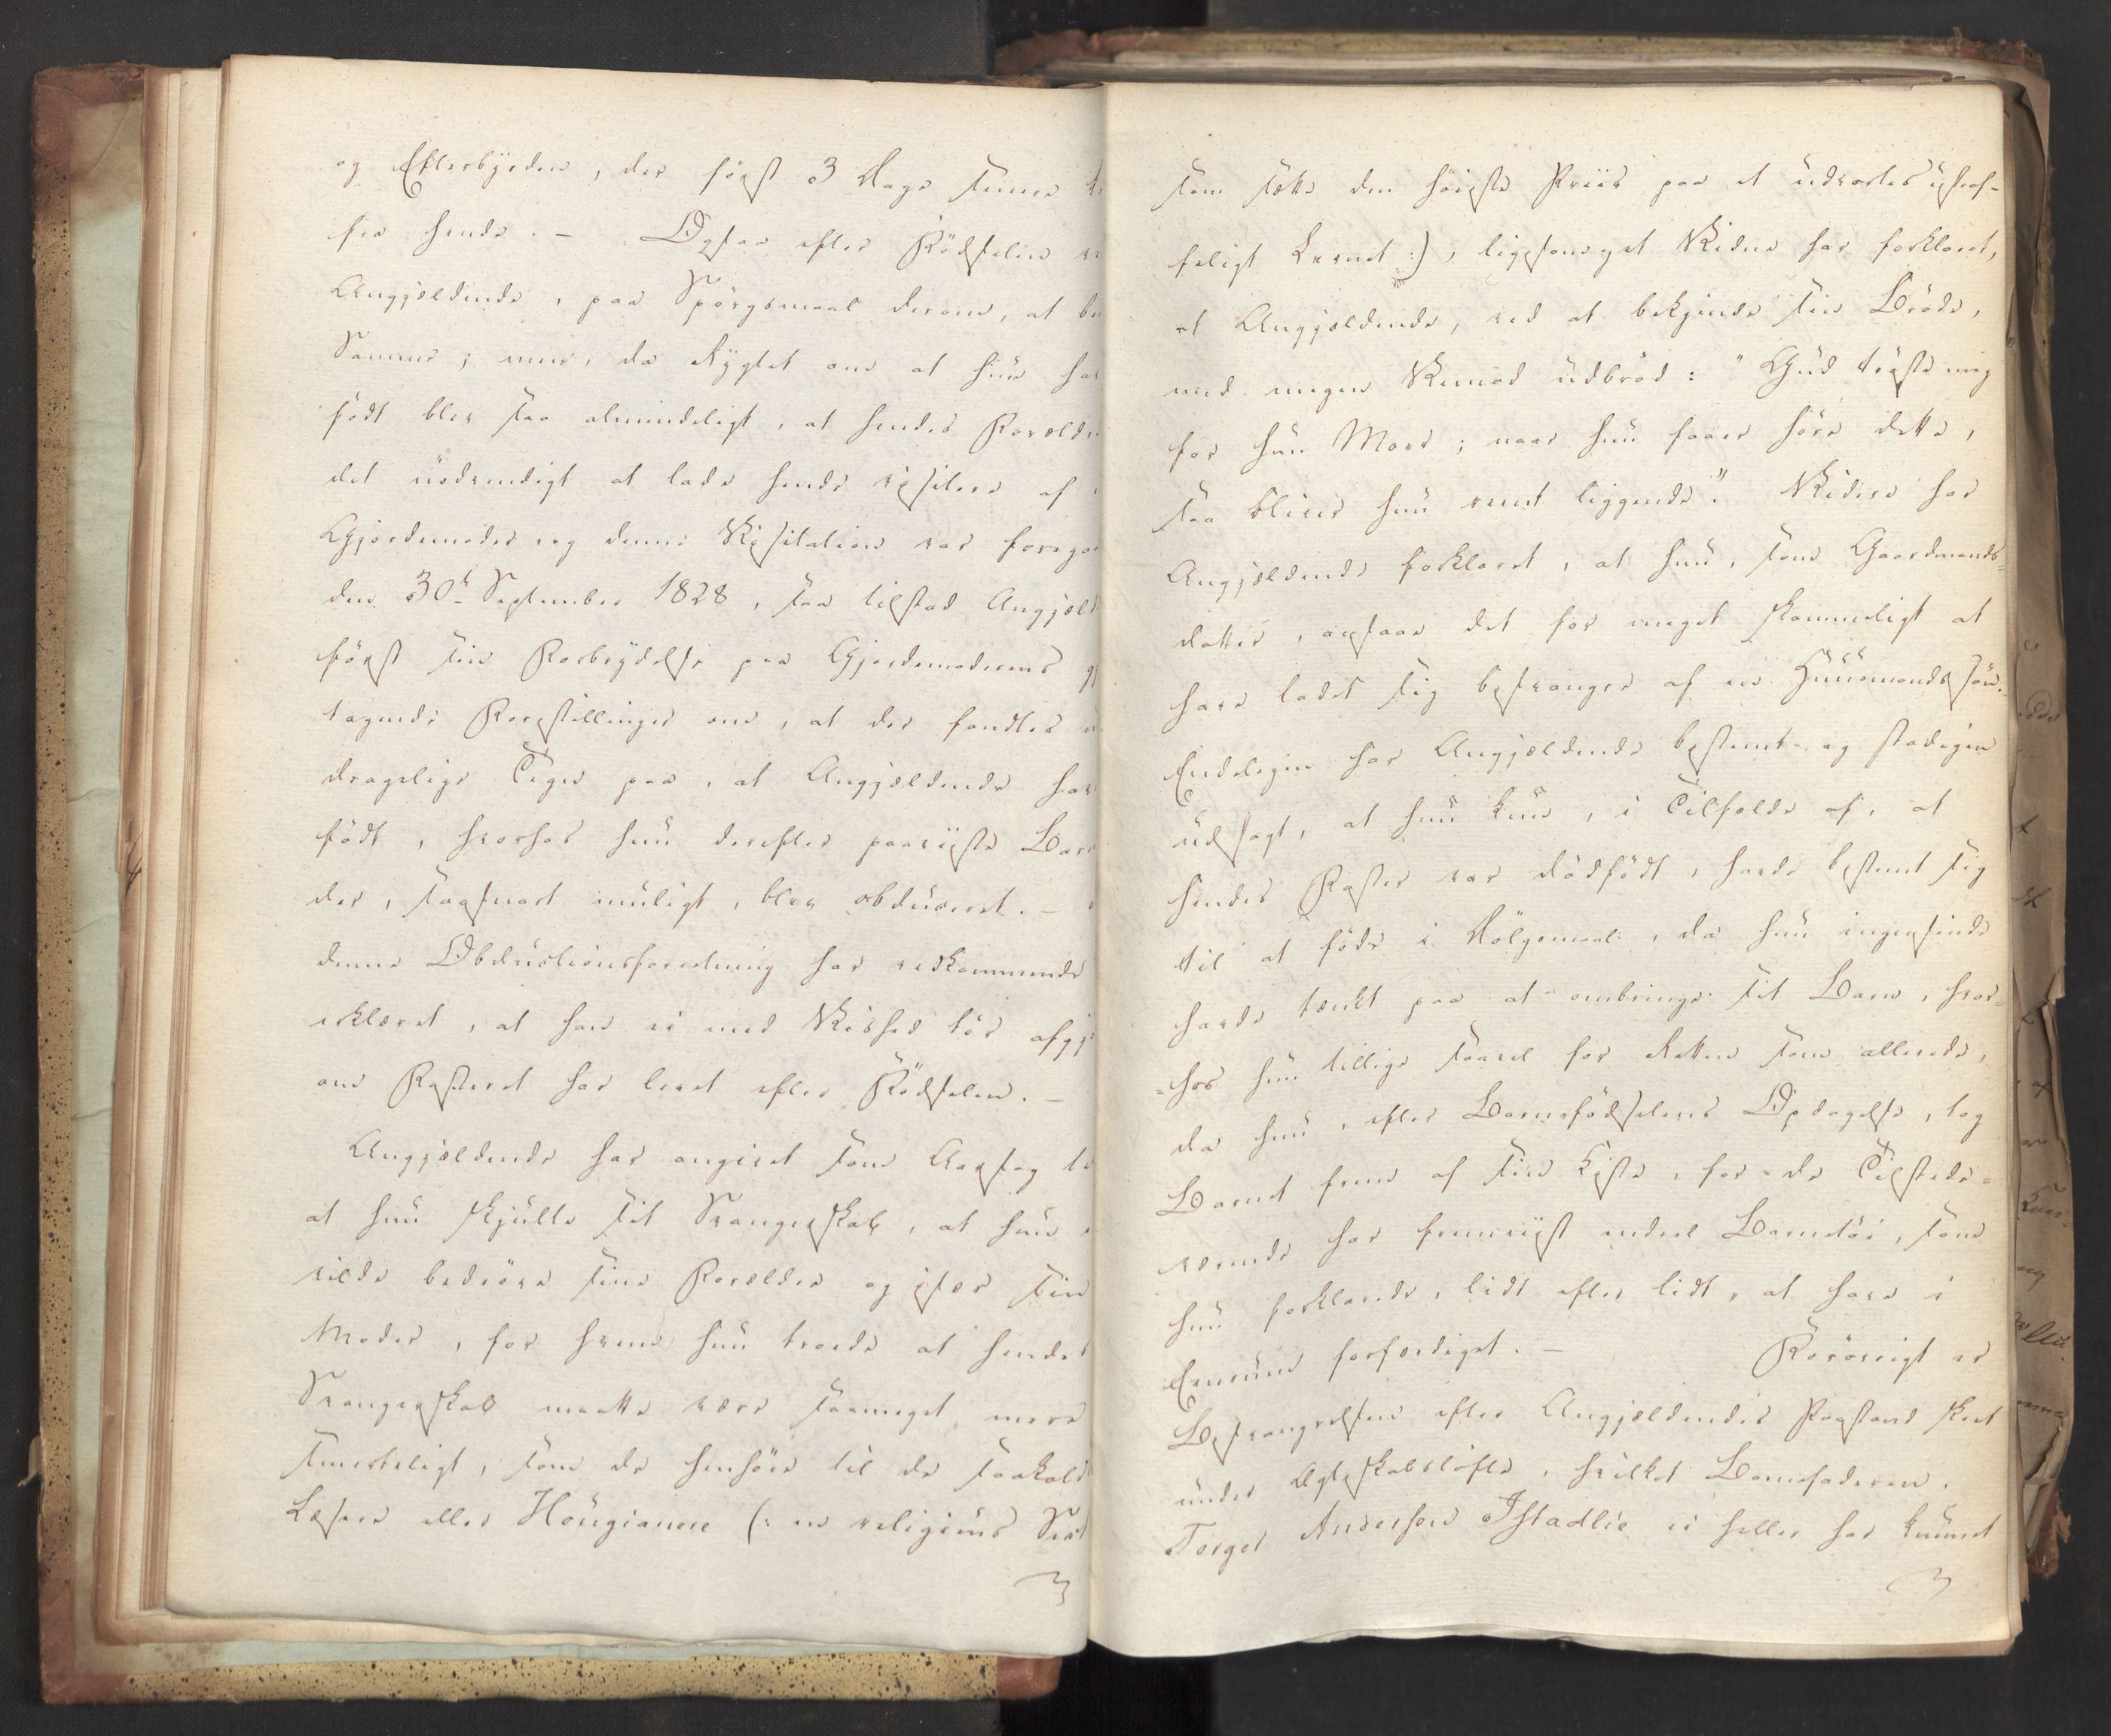 og Efterbyrden, der först 3 Dage senere
fra hende. – Ogsaa efter Födselen
Angjældende, paa Spörgsmaal derom, at
Samme; men, da Rygtet om at hun ha
födt blev saa almindeligt, at hendes Forældr
det nödvendigt at lade hende visitere af
Gjordemoder og denne Visitation var foregaa
den 30t September 1828, saa tilstod Angjæld
först sin Forbrydelse paa Gjordemoderens
tagende Forestillinger om, at der fandtes
dragelige Tegn paa, at Angjældende hav
födt, hvorhos hun derefter paaviiste Barn
der, saasnart muligt, blev obduceret. –
denne Obductionsforretning har vedkommende
erklæret, at han ei med Vished tör afgj
om Fosteret har levet efter Födselen. –
Angjældende har angivet som Aarsag ti
at hun skjulte sit Svangerskab, at hun
vilde bedröve sine Forældre og især sin
Moder, for hvem hun troede at hendes
Svangerskab maatte være saameget mere
smerteligt, som de henhöre til de saakald
Læsere eller Haugianere (: en religieus Sect
som sætte den höieste Priis paa et udvortes ustraf-
feligt Levnet :), ligesom et Vidne har forklaret,
at Angjældende, ved at bekjende sin Bröde,
med megen Vemod udbröd: "Gud tröste mig
for hun Moer; naar hun faaer höre dette,
saa bliver hun reent liggende". Videre har
Angjældende forklaret, at hun, som Gaardmands-
datter, ansaae det for meget skammeligt at
have ladet sig besvangre af en Huusmandssön.
Endeligen har Angjældende bestemt og stadigen
udsagt, at hun kun, i Tilfælde af, at
hendes Foster var dödfödt, havde bestemt sig
til at föde i Dölgsmaal, da hun ingensinde
havde tænkt paa at ombringe sit Barn, hvor-
-hos hun tillige saavel for Retten som allerede,
da hun, efter Barnefödselens Opdagelse, tog
Barnet frem af sin Kiste, for de Tilstede-
værende har fremviist endeel Barnetöi, som
hun forklarede, lidt efter lidt, at have i
Eenrum forfærdiget. – Forövrigt er
Besvangrelsen efter Angjældendes Paastand skeet
under Ægteskabslöfte, hvilket Barnefaderen,
Torger Andersen Ihladlie ei heller har kunnet